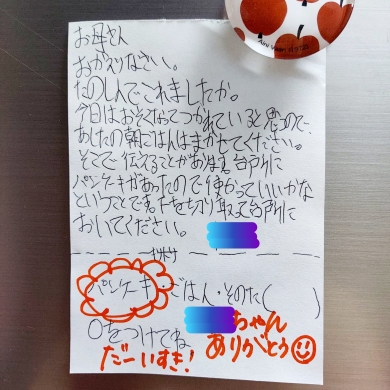 お母さん
おかえりなさい。
たのしんでこれましたか。
今日はおそくなってつかれていると思うので、
あしたの朝ごはんはまかせてください。
そこで伝えることがあります。台所に
パンケーキがあったので使かっていいかな
ということです。下を切り取って台所に
おいてください。
パンケーキ・ごはん・そのた(　　)
○をつけてね
ちゃん
だーいすき!
ありがとう